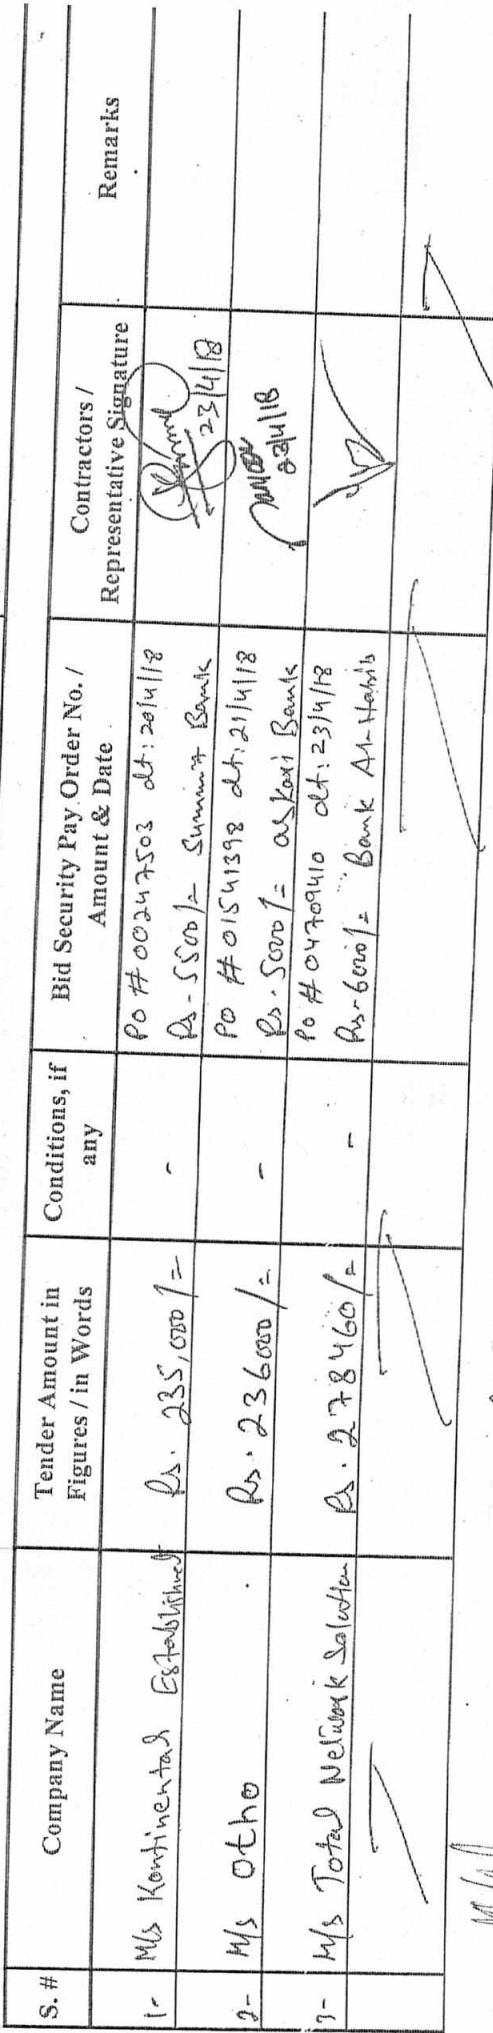 S. #
Company Name
Tender Amount in
Figures / in Words
Conditions, if
any
Bid Security Pay Order No. /
Amount & Date
Contractors /
Representative Signature
Remarks
1- M/s Kontinental Established
Rs. 235,000/=
-
PO # 00247503 dt: 20/4/18
Rs- 5500/= Summit Bank
23/4/18
2- M/s Otho
Rs. 236000/=
-
PO # 01541398 dt: 21/4/18
Rs. 5000/= askari Bank
23/4/18
3- M/s Total Network Solution
Rs. 278460/=
-
PO # 04709410 dt: 23/4/18
Rs- 6000/= Bank Al-Habib